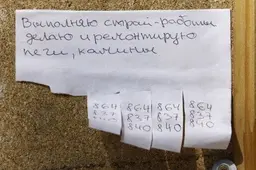 Выполняю старай-работы
делаю и ремонтирую
печи, камины
864
837
840
864
837
840
864
837
840
864
837
840